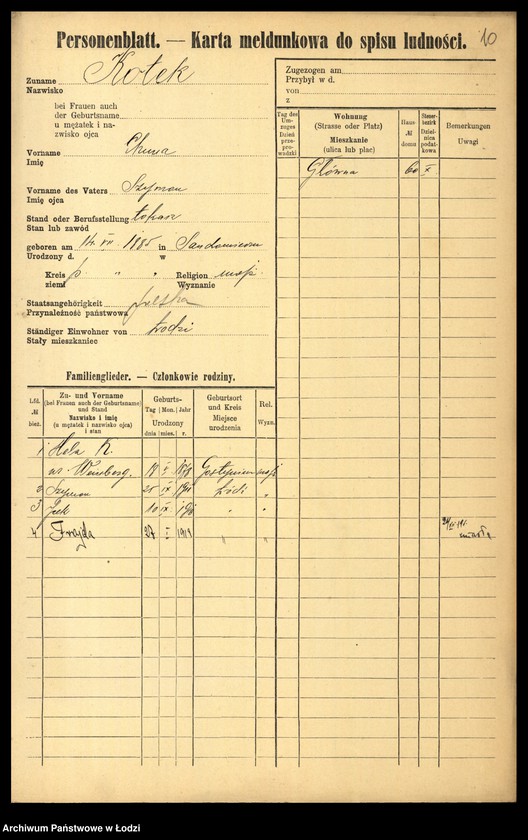 Personenblatt. — Karta meldunkowa do spisu ludności.
10
Zuname Kołek
Nazwisko
bei Frauen auch
der Geburtsname
u mężatek i na-
zwisko ojca
Vorname
Imię
Vorname des Vaters Szymon
Imię ojca
Stand oder Berufsstellung tokarz
Stan lub zawód
geboren am 14 VII 1885 in Sandomierz
Urodzony d. w
Kreis " " Religion mojż.
ziemi Wyznanie
Staatsangehörigkeit polska
Przynależność państwowa
Ständiger Einwohner von Łodzi
Stały mieszkaniec
Zugezogen am
Przybył w d.
von
z
Tag des Um-zuges
Dzień prze-pro-wadzki
Wohnung
(Strasse oder Platz)
Mieszkanie
(ulica lub plac)
Haus № domu
Steuer-bezirk
Dziel-nica podat-kowa
Bemerkungen
Uwagi
Główna 60 X
Familienglieder. — Członkowie rodziny.
Lfd. № bież.
Zu- und Vorname
(bei Frauen auch der Geburtsname)
und Stand
Nazwisko i imię
(u mężatek i nazwisko ojca)
i stan
Geburts-
Tag Mon. Jahr
Urodzony
dnia mies. r.
Geburtsort
und Kreis
Miejsce
urodzenia
Rel.
Wyzn.
1 Hela K.
Wemberg. Gostynin mojż
2 Szymon 25 IX 1911 Łódź "
3 10 IX " "
4 Frajda 27 1919 " "
zmarła
Archiwum Państwowe w Łodzi